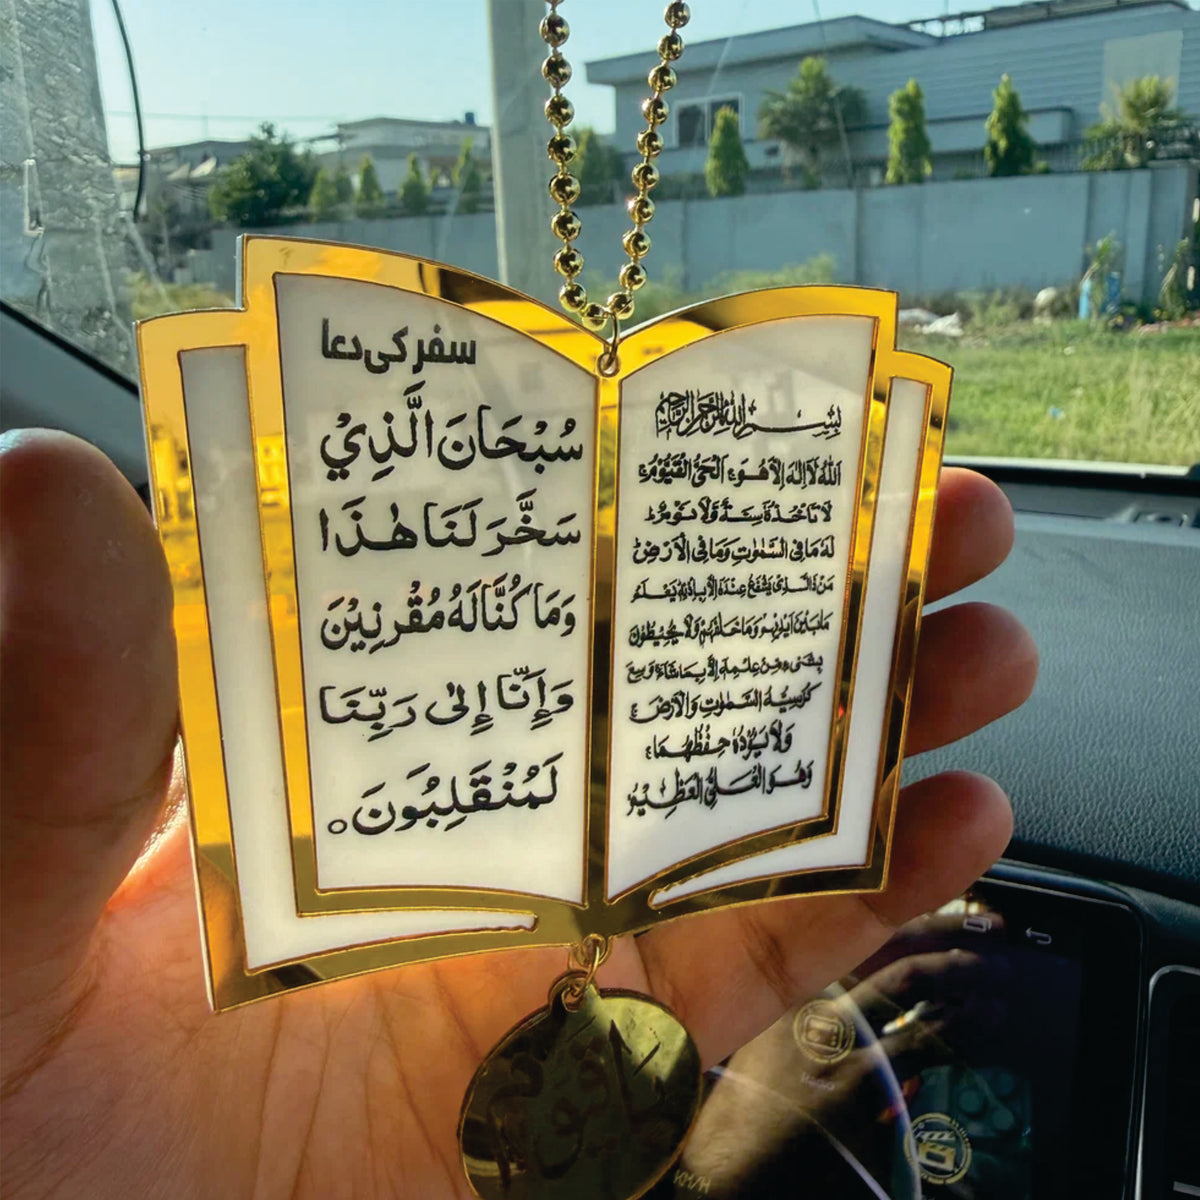 سفر کی دعا
سُبْحَانَ الَّذِيْ
سَخَّرَ لَنَا هٰذَا
وَمَا كُنَّا لَهُ مُقْرِنِيْنَ
وَإِنَّا إِلىٰ رَبِّنَا
لَمُنْقَلِبُونَ
بِسْمِ اللهِ الرَّحْمٰنِ الرَّحِيْمِ
اَللهُ لَآ اِلٰهَ اِلَّا هُوَ الْحَيُّ الْقَيُّوْمُ
لَا تَاْخُذُهٗ سِنَةٌ وَّلَا نَوْمٌ
لَهٗ مَا فِي السَّمٰوٰتِ وَمَا فِي الْاَرْضِ
مَنْ ذَا الَّذِيْ يَشْفَعُ عِنْدَهٗ اِلَّا بِاِذْنِهٖ يَعْلَمُ
مَا بَيْنَ اَيْدِيْهِمْ وَمَا خَلْفَهُمْ وَلَا يُحِيْطُوْنَ
بِشَيْءٍ مِّنْ عِلْمِهٖ اِلَّا بِمَا شَآءَ وَسِعَ
كُرْسِيُّهُ السَّمٰوٰتِ وَالْاَرْضَ
وَلَا يَئُوْدُهٗ حِفْظُهُمَا
وَهُوَ الْعَلِيُّ الْعَظِيْمُ
KM/H